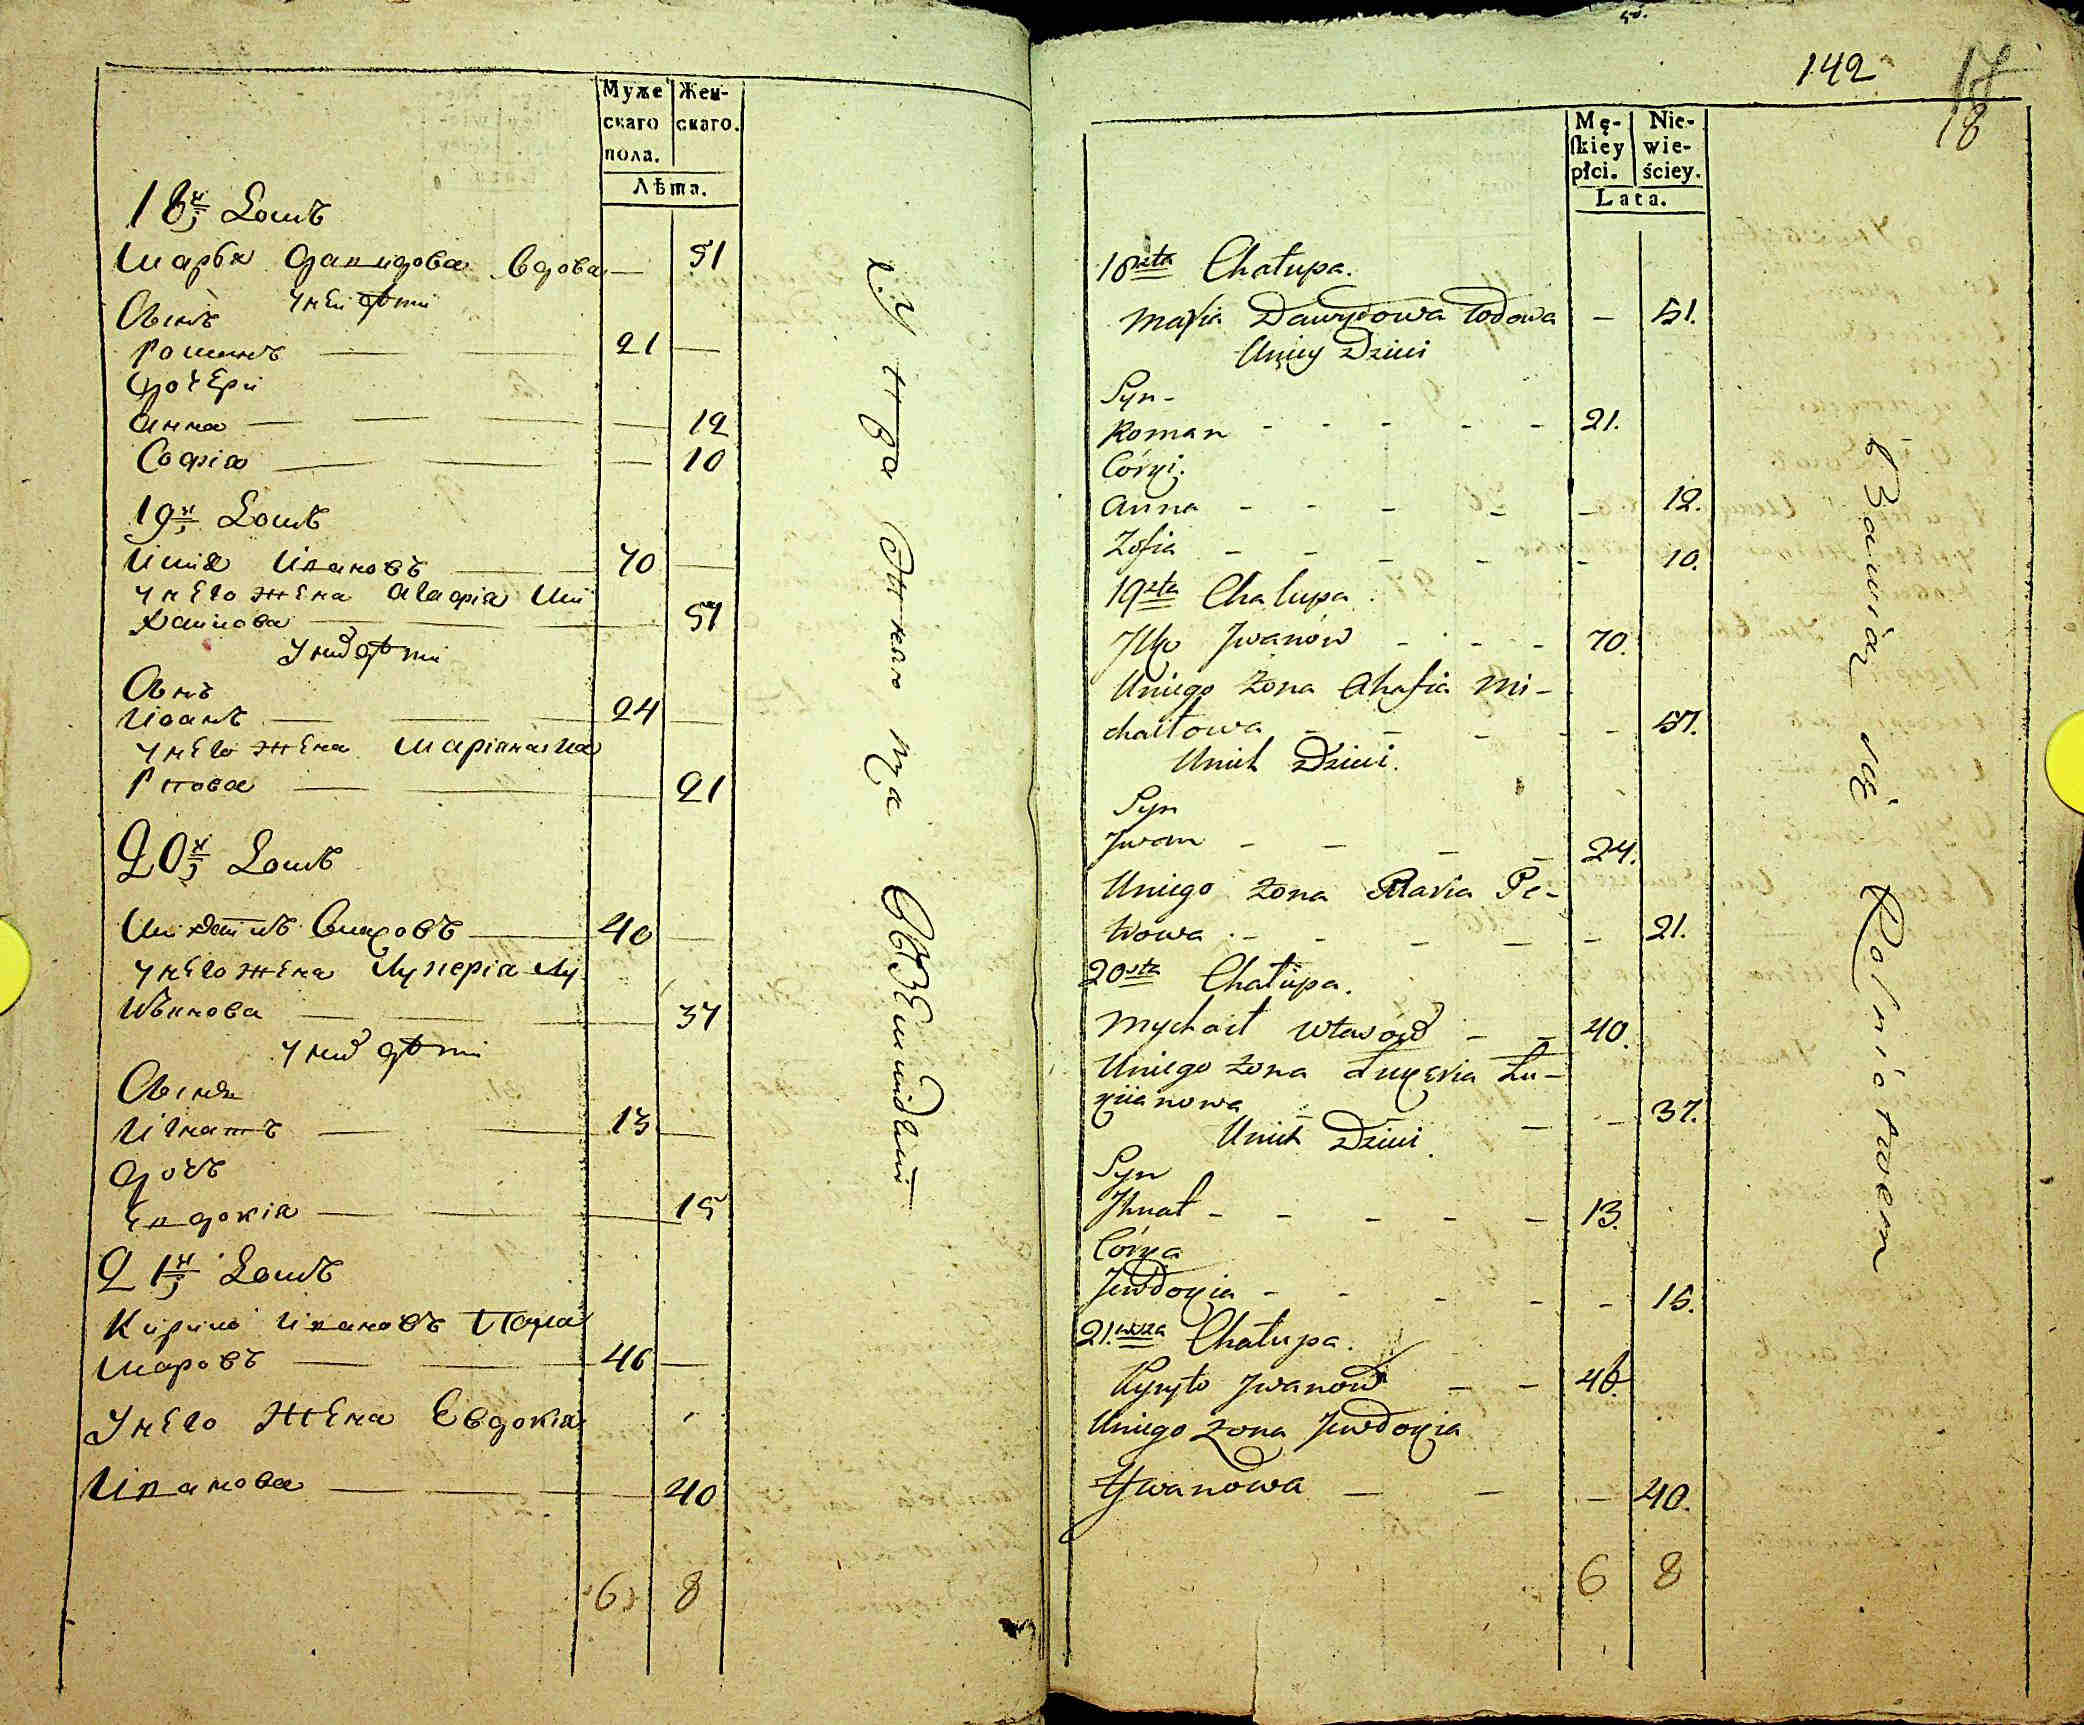 Муже
скаго
пола.
Жен-
скаго.
Лѣта.
18й Домъ
Марья Давидова вдова — 51
у неи дѣти
Сынъ
Романъ — 21 —
Дочери
Анна — 12
Софія — 10
19й Домъ
Ивановъ — 70 —
у него жена Агафія Ми
хайлова — 57
у ныхъ дѣти
Сынъ
Иванъ — 24 —
у него жена Маріанна Пе
трова — 21
20й Домъ
Михайлъ — 40 —
у него жена Лукерія Лу
кянова — 37
у ныхъ дѣти
Сынъ
Игнатъ — 13 —
Дочь
Евдокія — 15
21й Домъ
Кирило Ивановъ
маровъ — 46 —
У него жена Евдокія
Иванова — 40
6 8
142
17
18
Mę-
ſkiey
płci.
Nie-
wie-
ściey.
Lata.
18sta Chałupa.
Maria Dawydowa Wdowa — 51.
Uniey Dzieci
Syn -
Roman - - - - - 21.
Córki.
Anna - - - - - 12.
Zofia - - - - - 10.
19sta Chałupa
Ilko Iwanów - - - 70.
Uniego Żona Ahafia Mi-
chaiłowa - - - - - 57.
Unich Dzieci.
Syn
Iwan - - - - 24.
Uniego Żona Maria Pe-
trowa - - - - - - 21.
20sta Chałupa.
Mychaił - - 40.
Uniego Żona Łukeria Łu-
kijanowa - - 37.
Unich Dzieci.
Syn
Ihnat - - - - - 13.
Córka
Jewdokia - - - - - 15.
21.wsza Chałupa.
Kyryło Iwanów - - 46.
Uniego Żona Jewdokia
Iwanowa - - - 40.
6 8
Bawią się Rolnictwem